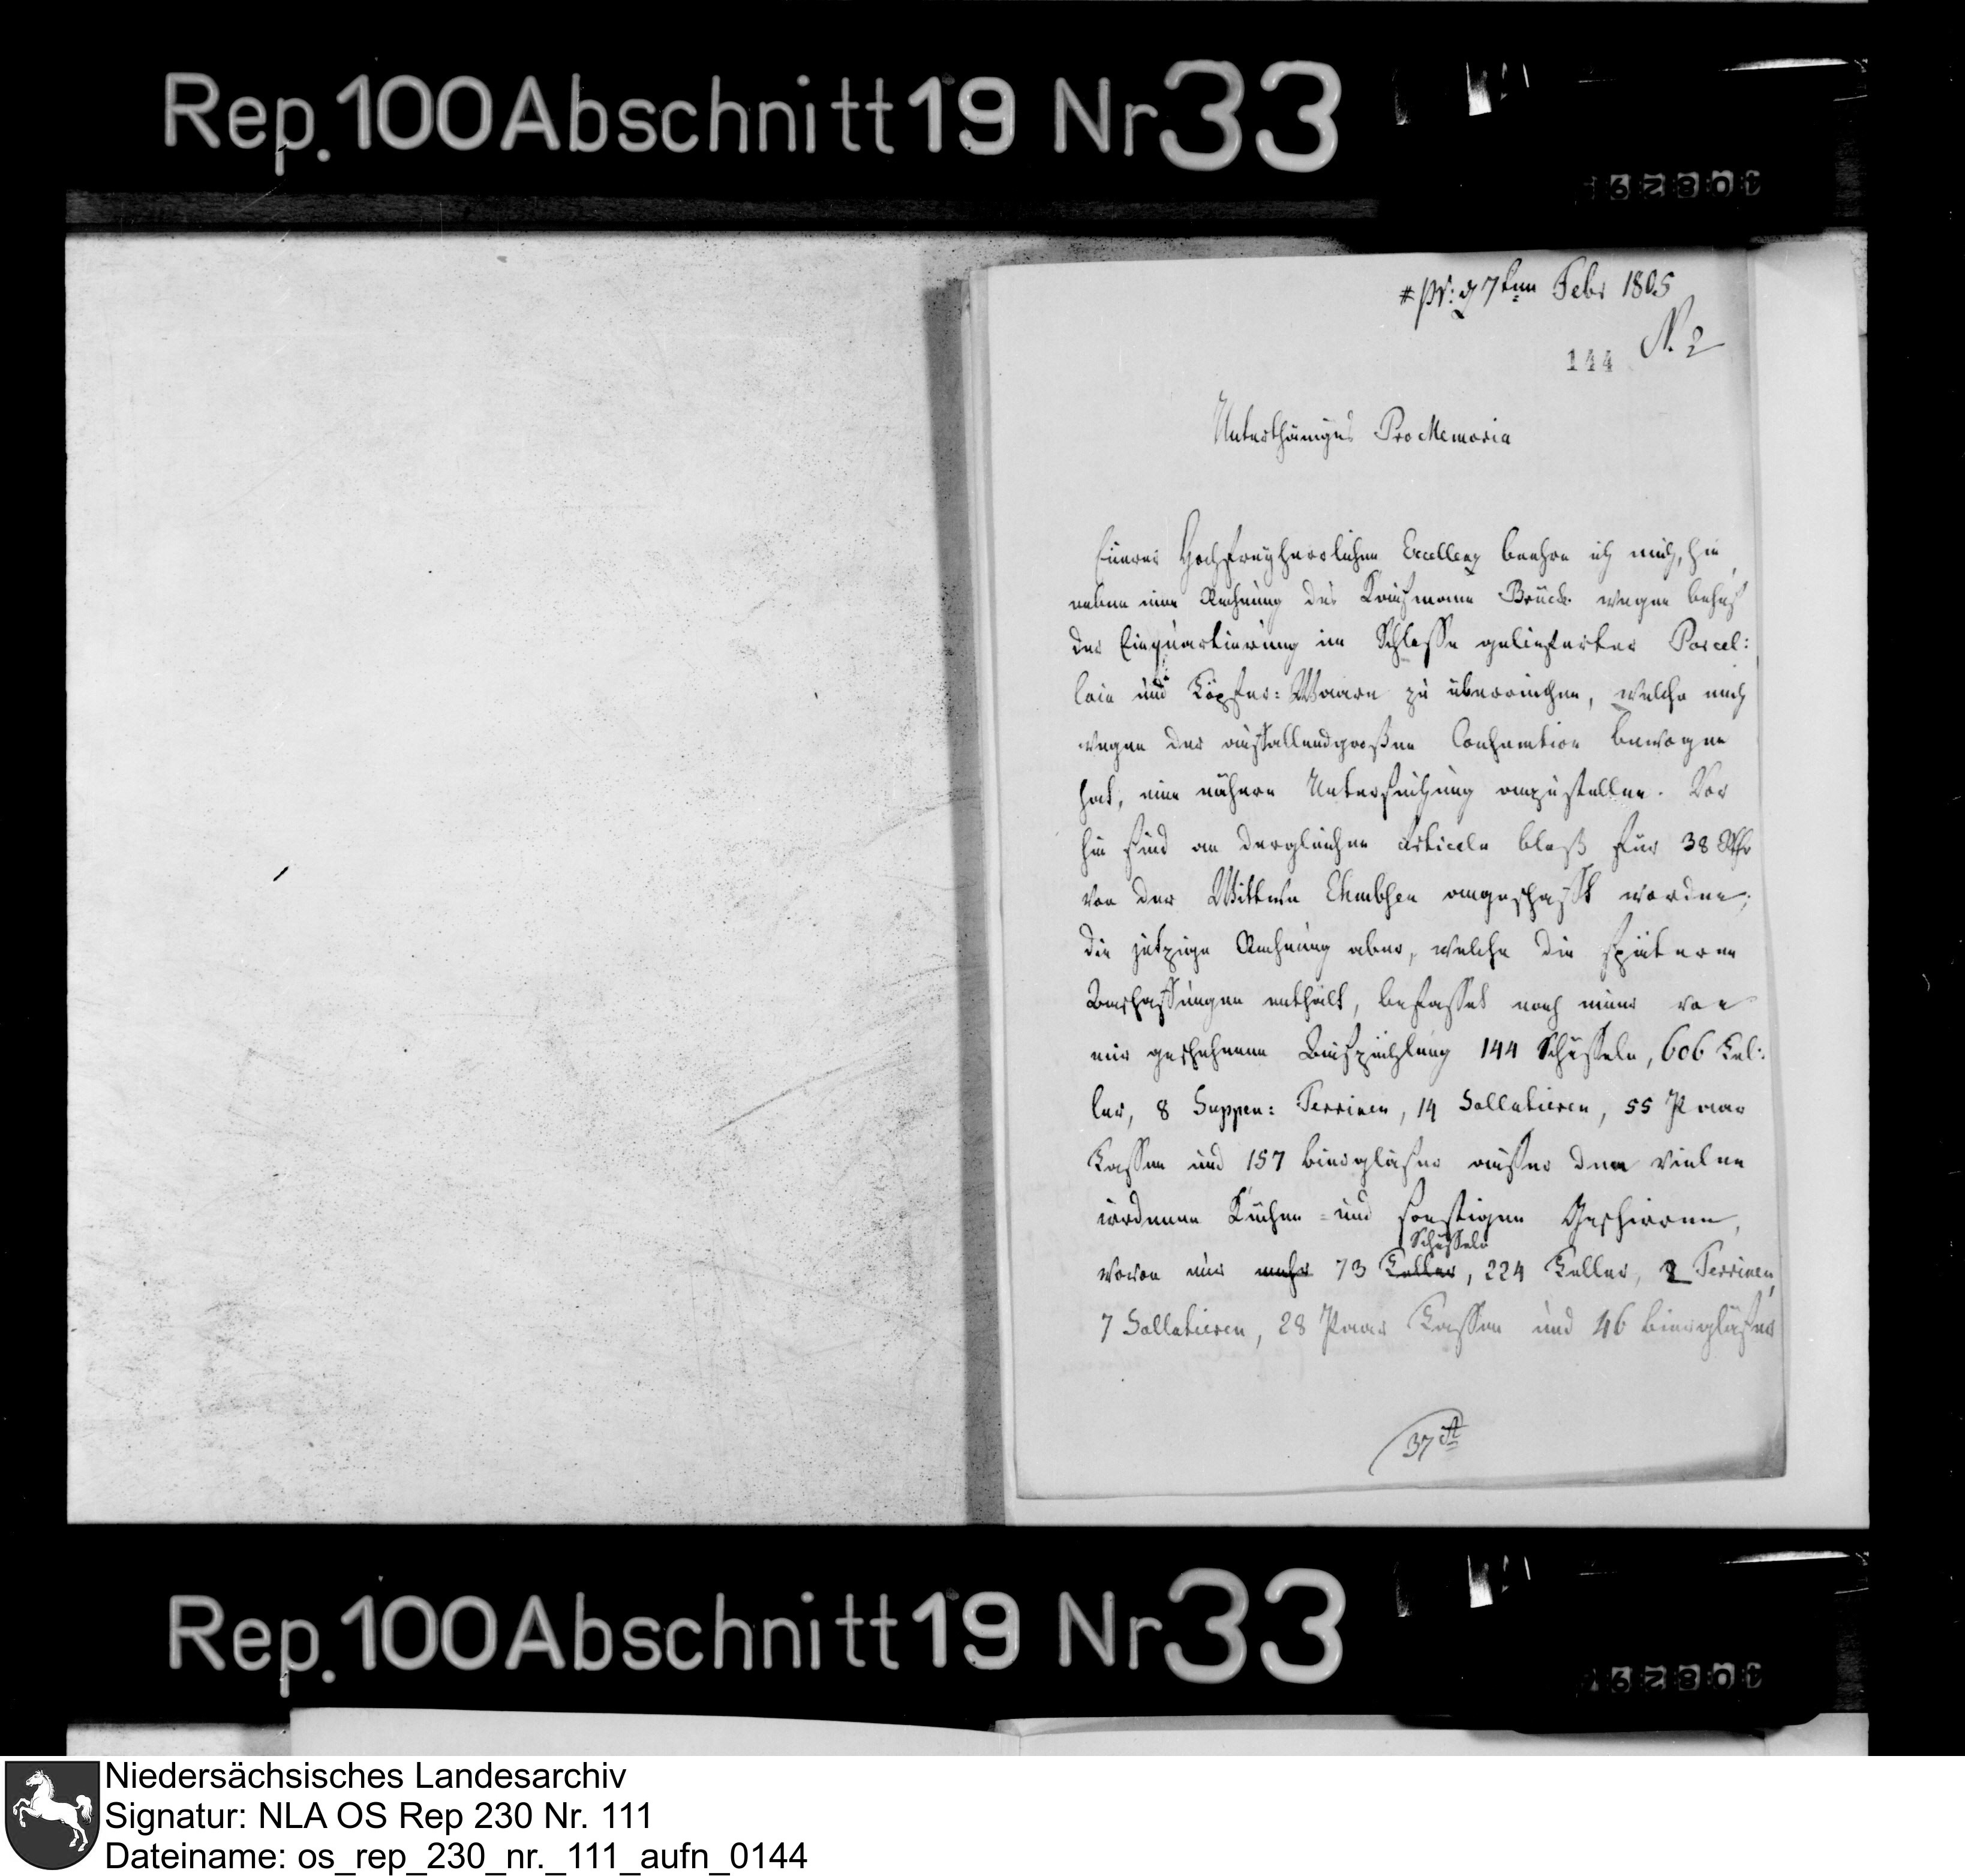 Rep. 100 Abschnitt 19 Nr 33
pr: d 7ten Febr 1805
N. 2
144
Unterthäniges Pro Memoria
Euerer Hochfreyherrlichen Excellenz beehre ich mich, hie
neben eine Rechnung des Kaufmanns Brück wegen behuf
der Einquartierung im Schlosse gelieferter Porcel:
lain und Töpfer: Waaren zu überreichen, welche mich
wegen der auffallendgroßen Consumtion bewogen
hat, eine nähere Untersuchung anzustellen. Vor
hin sind an dergleichen Articeln bloß für 38 Rthr
von der Wittwe angeschafft worden;
die jetzige Rechnung aber, welche die späteren
Anschaffungen enthält, befasset nach einer von
mir geschehenen Ausziehung 144 Schüsseln, 606 Tel:
ler, 8 Suppen: Terrinen, 14 Sallatieren, 55 Paar
Tassen und 157 Biergläser außer den vielen
irdenen Küchen- und sonstigen Geschirren,
Schüsseln
wovon nur mehr 73 Teller, 224 Teller, 2 Terrinen,
7 Sallatieren, 28 Paar Tassen und 46 Biergläser
37
Rep. 100 Abschnitt 19 Nr 33
Niedersächsisches Landesarchiv
Signatur: NLA OS Rep 230 Nr. 111
Dateiname: os_rep_230_nr._111_aufn_0144